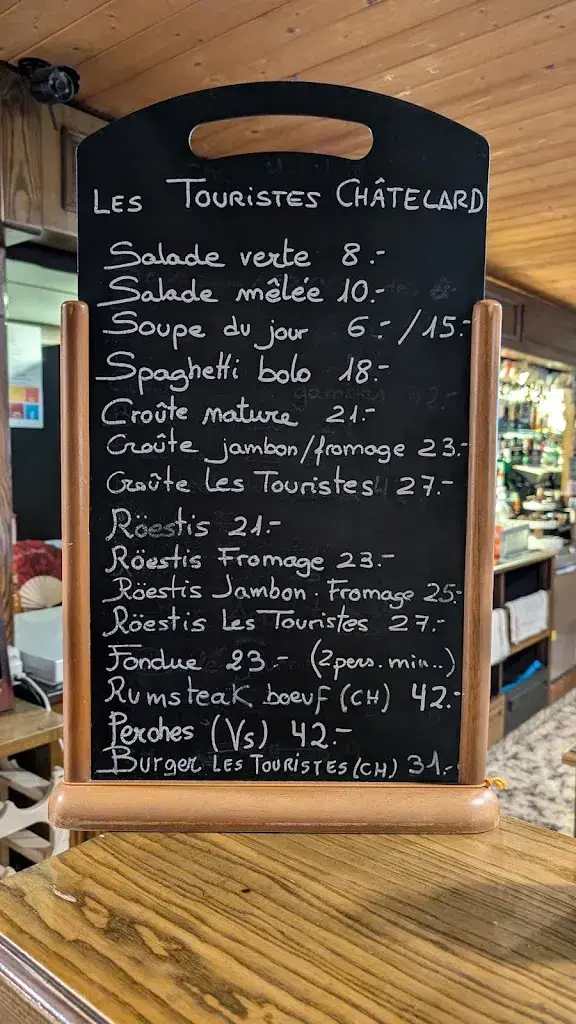 LES TOURISTES CHÂTELARD
Salade verte 8.-
Salade mêlée 10.-
Soupe du jour 6.-/15.-
Spaghetti bolo 18.-
Croûte nature 21.-
Croûte jambon/fromage 23.-
Croûte Les Touristes 27.-
Röestis 21.-
Röestis Fromage 23.-
Röestis Jambon.Fromage 25.-
Röestis Les Touristes 27.-
Fondue 23.- (2pers. min..)
Rumsteak boeuf (CH) 42.-
Perches (Vs) 42.-
Burger LES TOURISTES (CH) 31.-